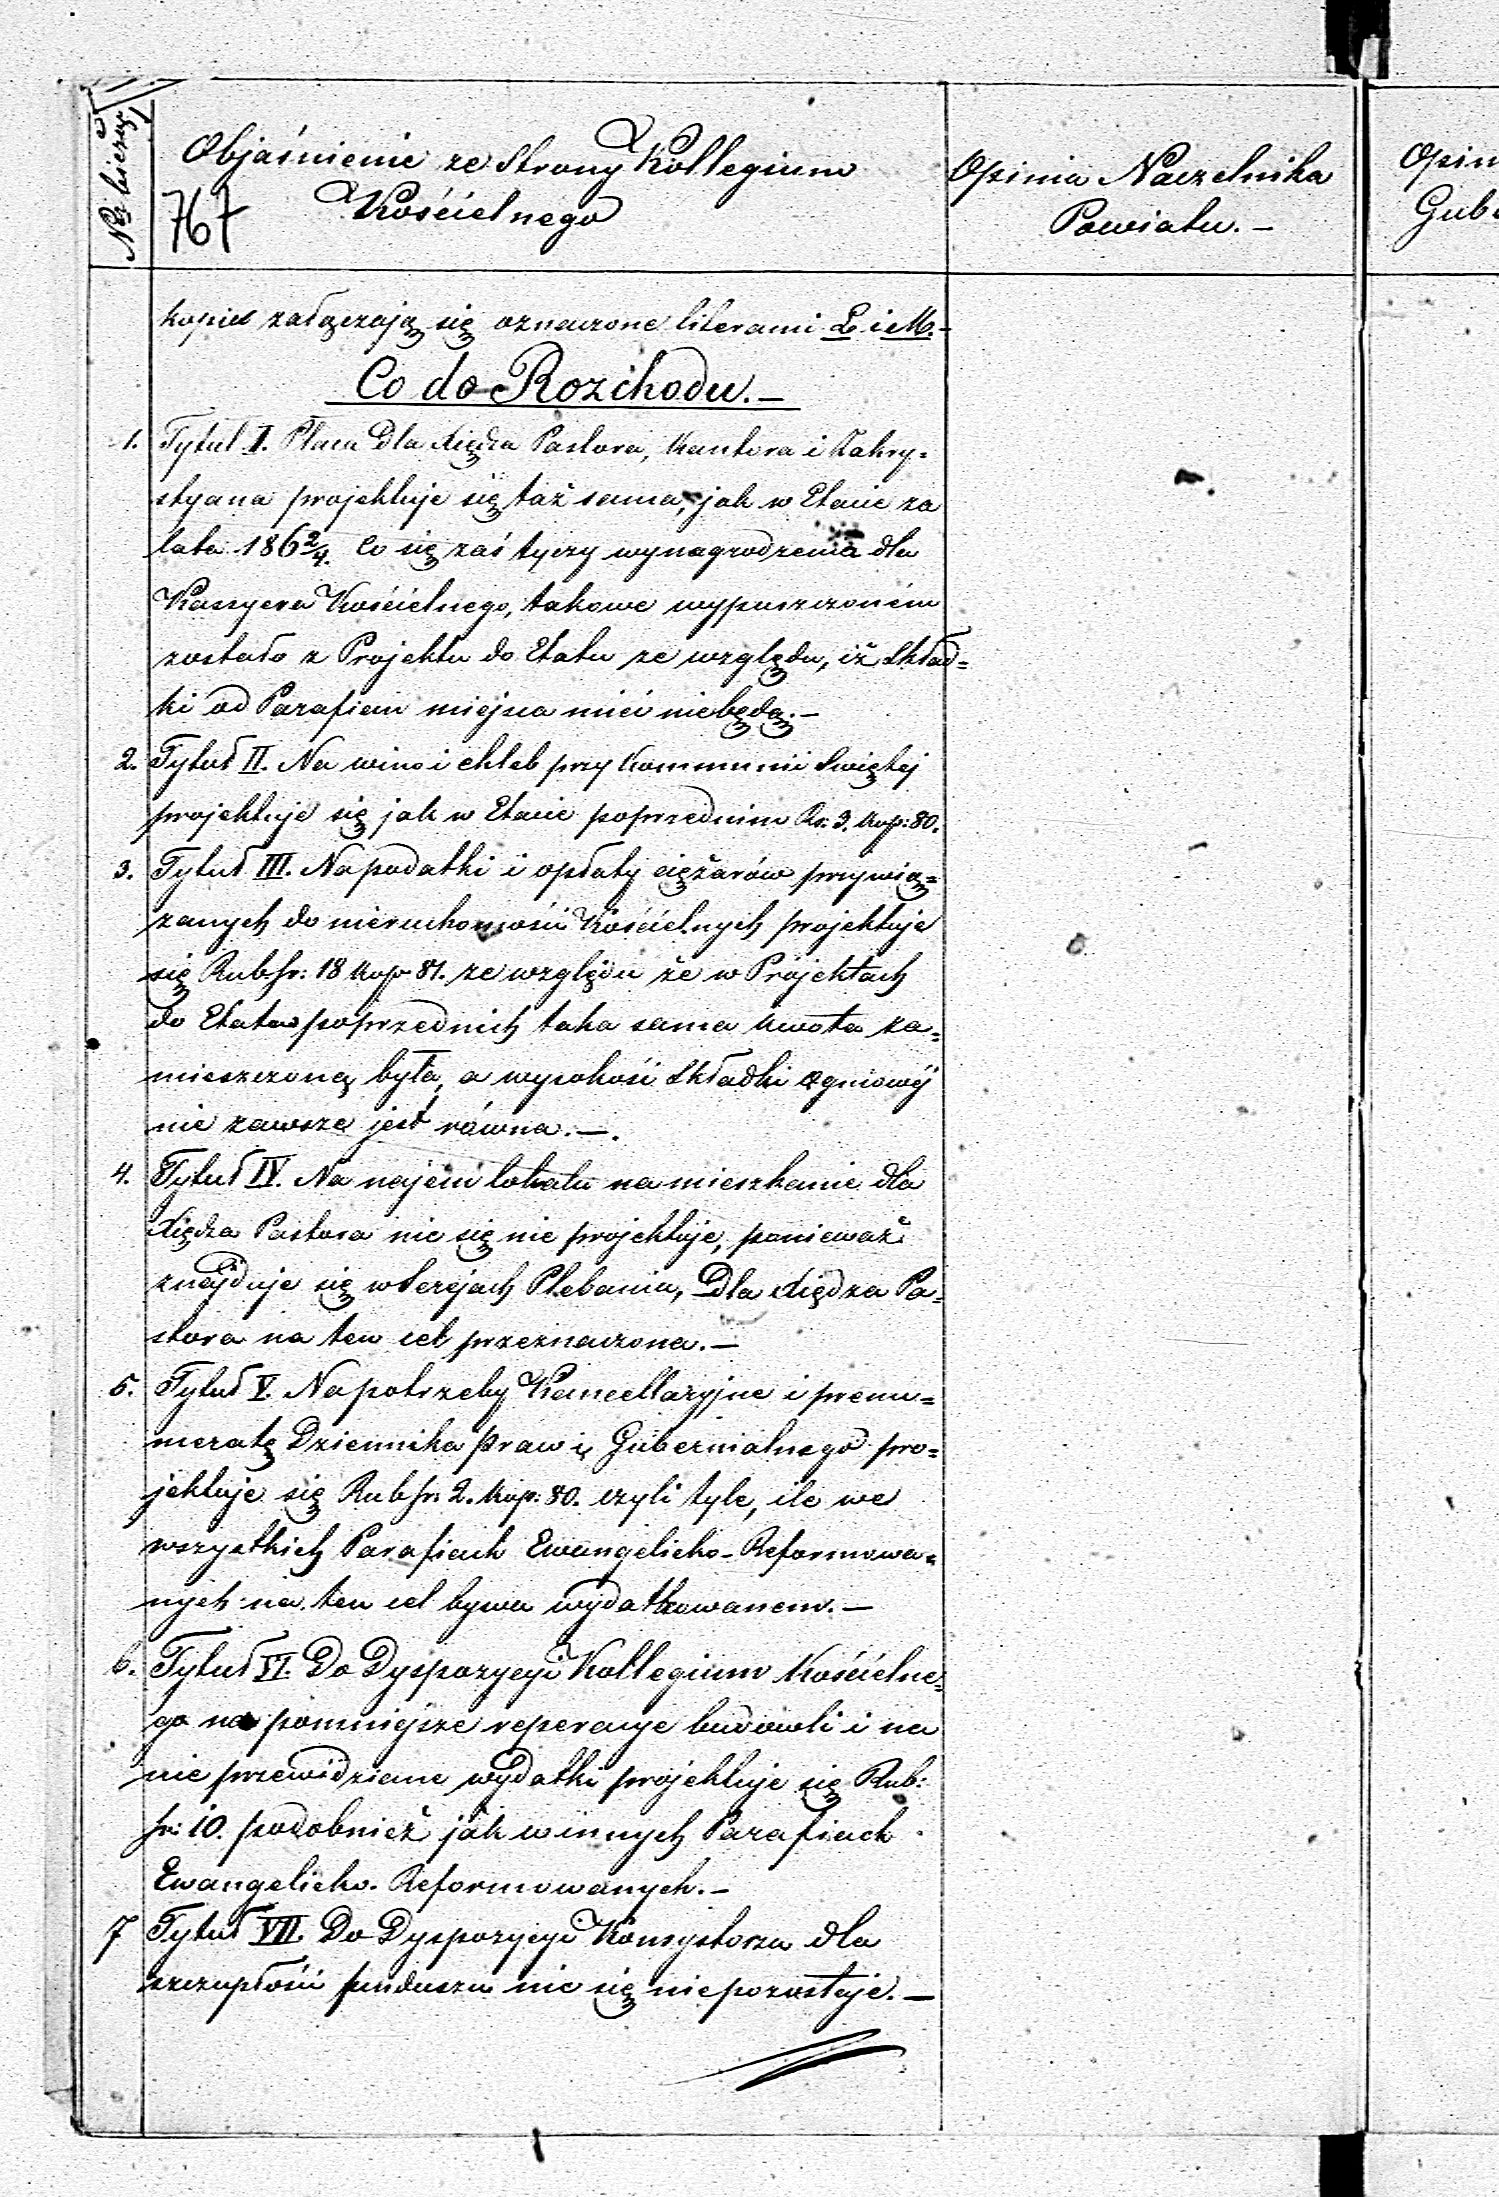 Nr bieżący
Objaśnienie ze Strony Kollegium
Kościelnego
767
Opinia Naczelnika
Powiatu.-
Opin
Gub
kopie załączają się oznaczone literami L i M.-
Co do Rozchodu.-
1. Tytuł I. Płaca dla Xiędza Pastora, Kantora i Zakry-
styana projektuje się taż sama, jak w Etacie za
lata 186 2/4. Co się zaś tyczy wynagrodzenia dla
Kassyera Kościelnego, takowe wypuszczoném
zostało z Projektu do Etatu ze względu, iż Skład=
ki od Parafian miejsca mieć niebędą.-
2. Tytuł II. Na wino i chleb przy Kommunii Świętej
projektuje się jak w Etacie poprzednim Rs: 3. Kop: 80.
3. Tytuł III. Na podatki i opłaty ciężarów przywią=
zanych do nieruchomości Kościelnych projektuje
się Rub sr: 18 Kop 81. ze względu że w Projektach
do Etatów poprzednich taka sama kwota za=
mieszczoną była, a wysokość Składki ogniowéj
nie zawsze jest równa.-.
4. Tytuł IV. Na najem lokalu na mieszkanie dla
Xiędza Pastora nic się nie projektuje, ponieważ
znajduje się w Serejach Plebania, dla Xiędza Pa=
stora na ten cel przeznaczona.-
5. Tytuł V. Na potrzeby Kancellaryjne i prenu=
meratę Dziennika praw i Gubernialnego pro=
jektuje się Rub sr: 2. Kop: 80. czyli tyle, ile we
wszystkich Parafiach Ewangelicko-Reformowa=
nych na ten cel bywa wydatkowanem.-
6. Tytuł VI. Do Dyspozycyi Kollegium Kościelne=
go na pomniejsze reperacye budowli i na
nie przewidziane wydatki projektuje się Rub:
sr: 10. podobnież jak w innych Parafiach
Ewangelicko-Reformowanych.-
7 Tytuł VII. Do Dyspozycyi Konsystorza dla
szczupłości funduszu nic się niepozostaje.-